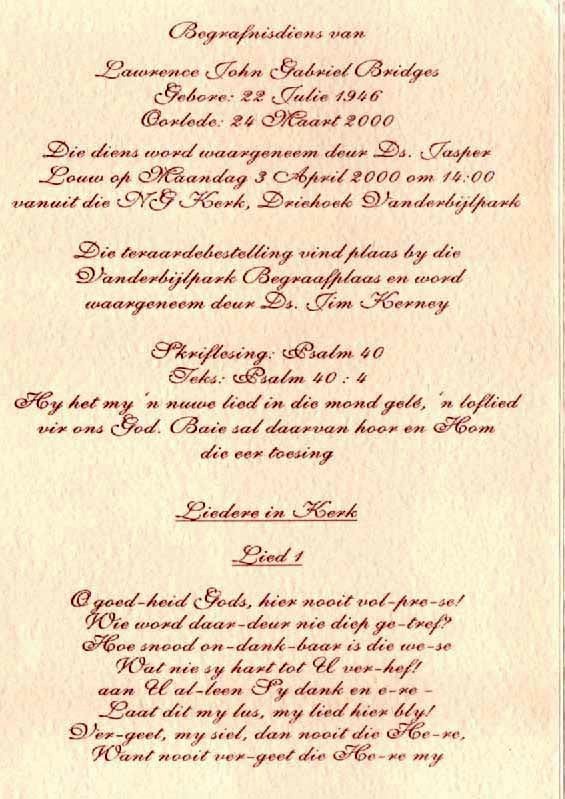 Begrafnisdiens van
Lawrence John Gabriel Bridges
Gebore: 22 Julie 1946
Oorlede: 24 Maart 2000
Die diens word waargeneem deur Ds. Jasper
Louw op Maandag 3 April 2000 om 14:00
vanuit die NG Kerk, Driehoek Vanderbijlpark
Die teraardebestelling vind plaas by die
Vanderbijlpark Begraafplaas en word
waargeneem deur Ds. Jim Kerney
Skriflesing: Psalm 40
Teks: Psalm 40 : 4
Hy het my 'n nuwe lied in die mond gelê, 'n loflied
vir ons God. Baie sal daarvan hoor en Hom
die eer toesing
Liedere in Kerk
Lied 1
O goed-heid Gods, hier nooit vol-pre-se!
Wie word daar-deur nie diep ge-tref?
Hoe snood on-dank-baar is die we-se
Wat nie sy hart tot U ver-hef!
aan U al-leen Sy dank en e-re -
Laat dit my lus, my lied hier bly!
Ver-geet, my siel, dan nooit die He-re,
Want nooit ver-geet die He-re my